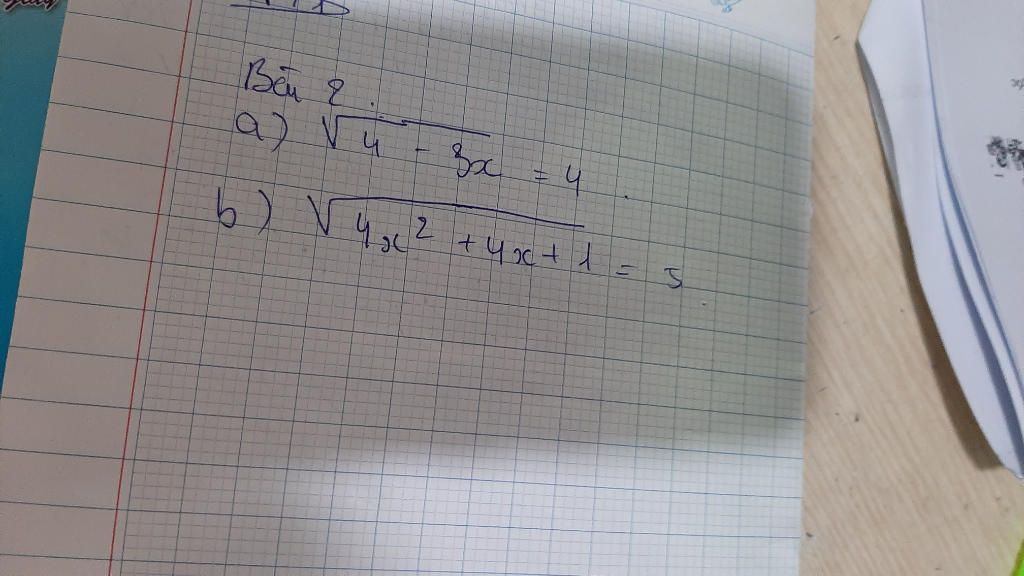 Bài 2.
a) √4 - 3x = 4.
b) √4x² + 4x + 1 = 5.